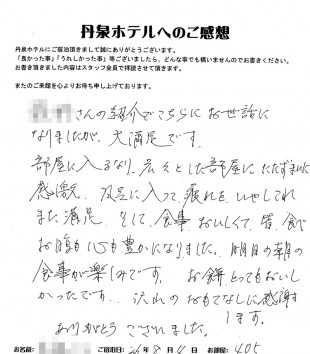 丹泉ホテルへのご感想
丹泉ホテルにご宿泊頂きまして誠にありがとうございます。
「良かった事」「うれしかった事」等ございましたら、どんな事でも構いませんのでお書きください。
お書き頂きました内容はスタッフ全員で拝読させて頂きます。
またのご来館を心よりお待ち申し上げております。
さんの紹介でこちらにお世話に
なりましたが、大満足です。
部屋に入るなり、広々とした部屋にたたずまいに
感激、 に入って、疲れをいやしてれ
また満足、そして、食事おいしくて、皆、食べ
お腹も心も豊かになりました。明日の朝の
食事が楽しみです。お餅とってもおいし
かったです。 のおもてなしに感謝
します。
ありがとうございました。
お名前: ご宿泊日: 26年 8月 4日 お部屋: 405